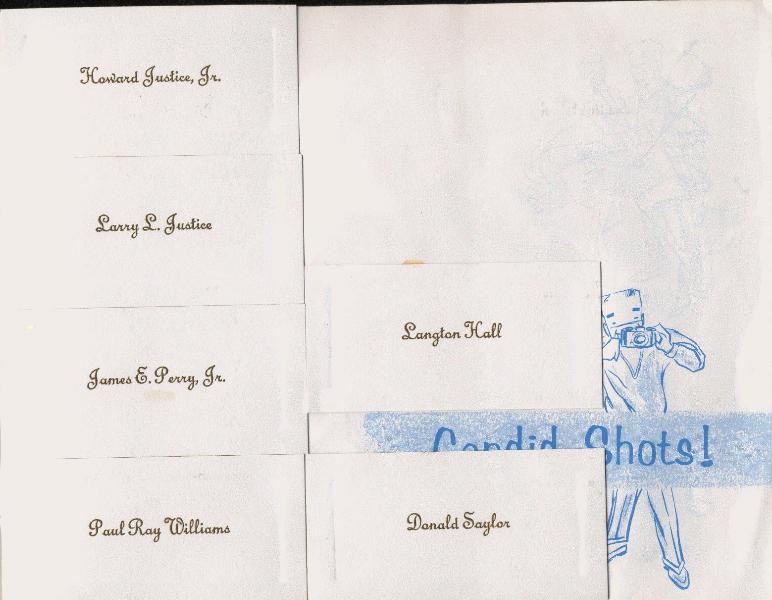 Howard Justice, Jr.
Larry L. Justice
James E. Perry, Jr.
Paul Ray Williams
Langton Hall
Candid Shots!
Donald Saylor